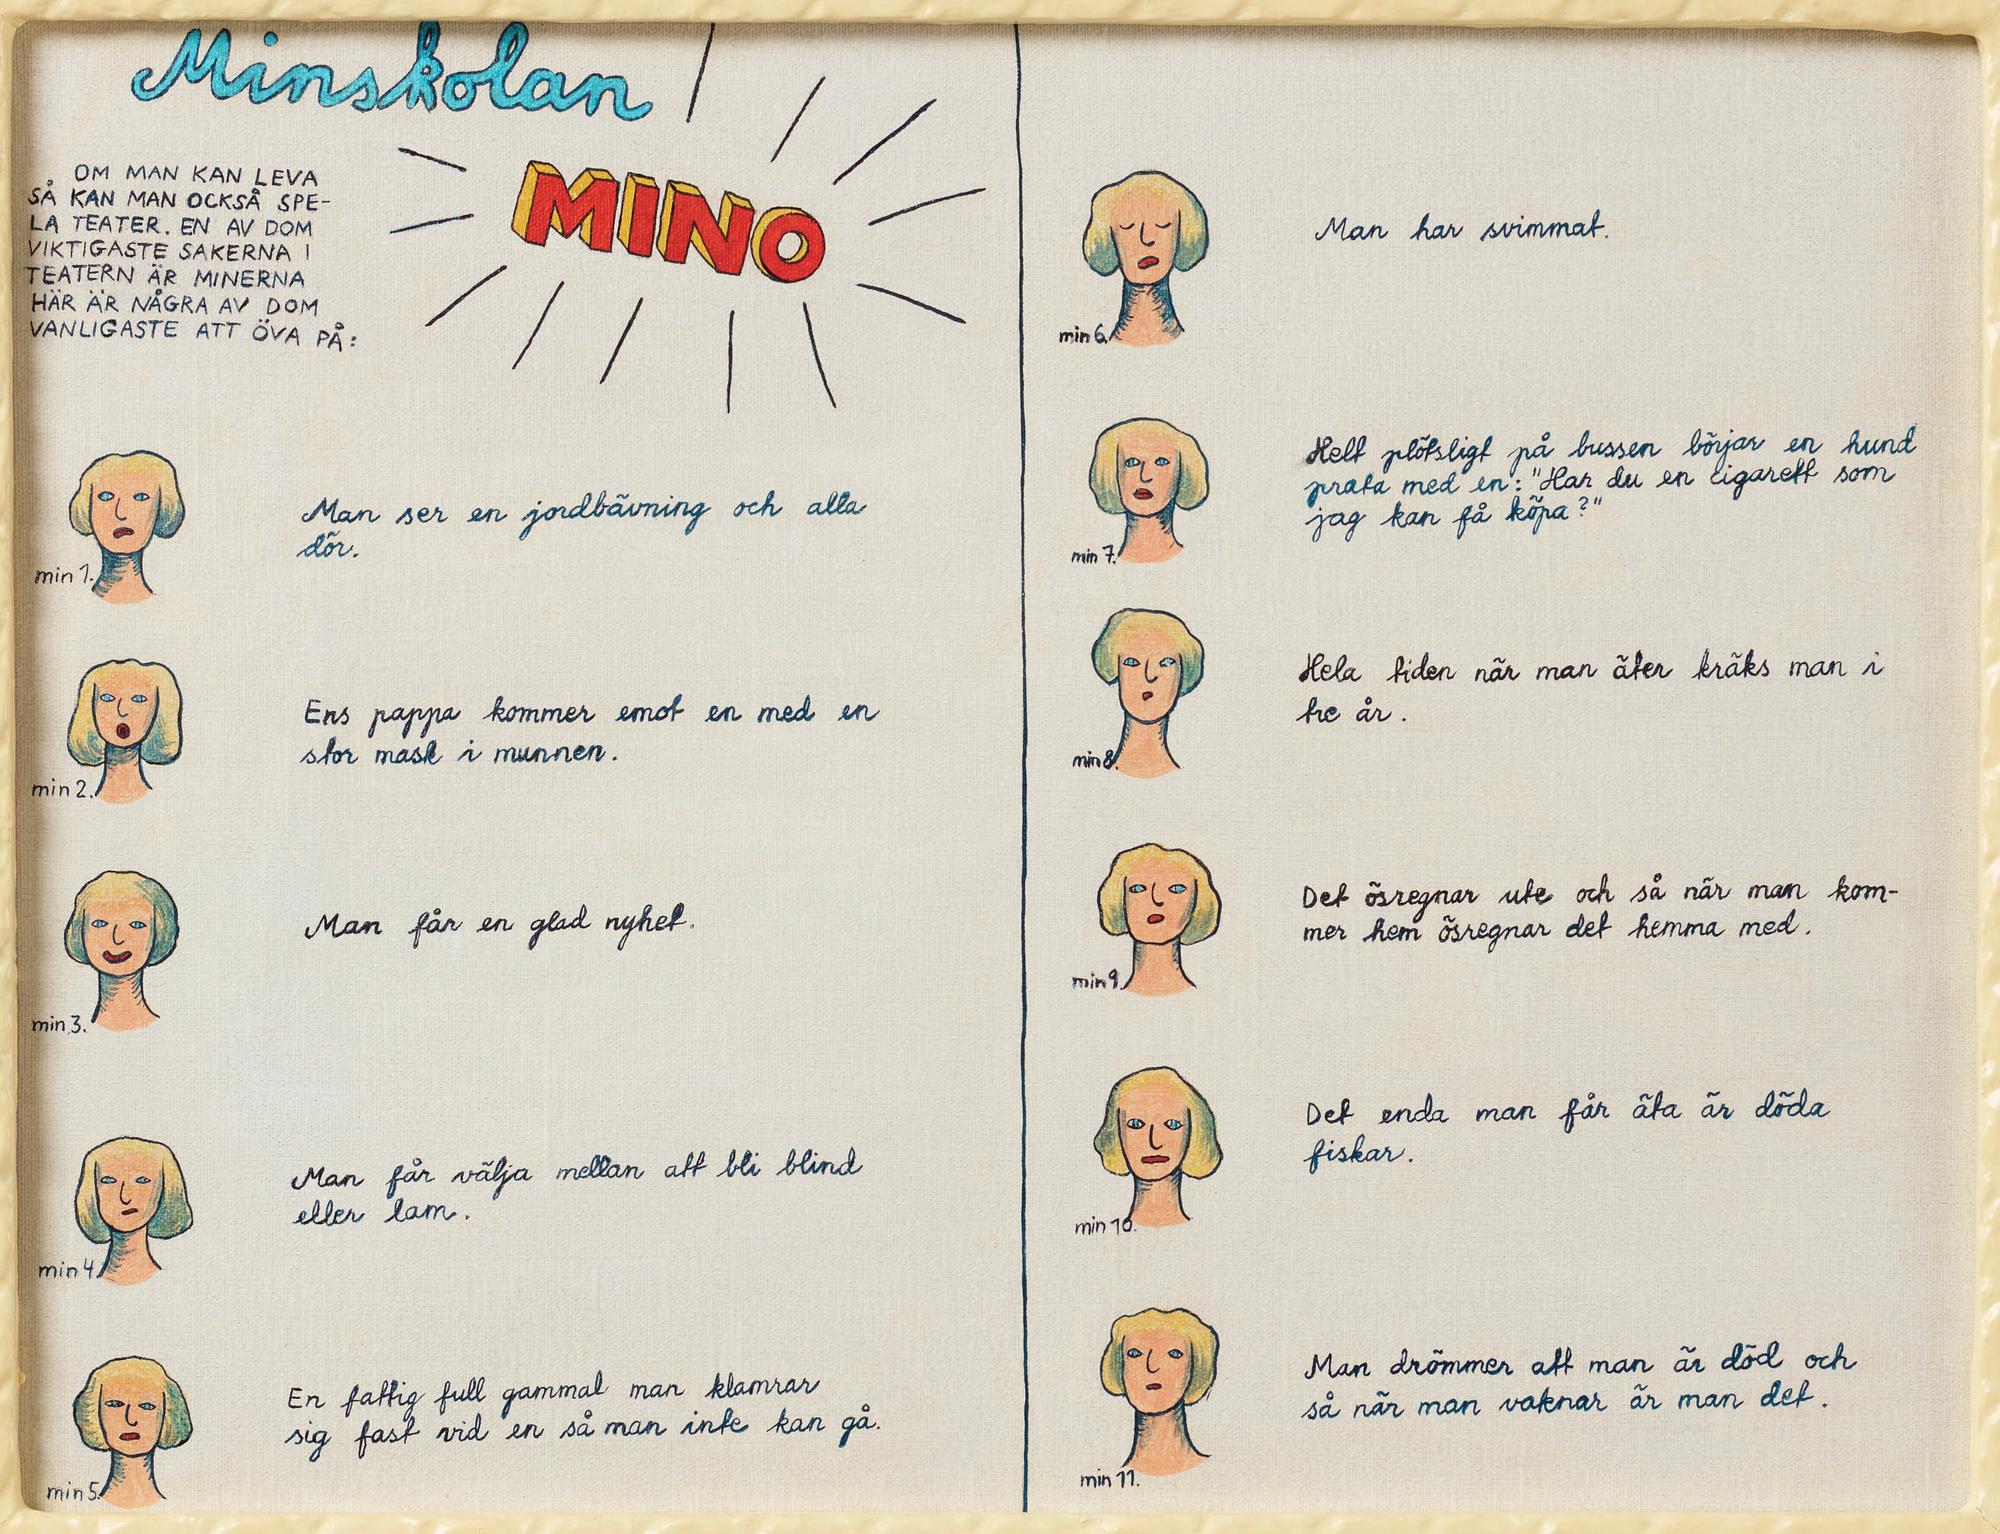 Minskolan
MINO
OM MAN KAN LEVA
SÅ KAN MAN OCKSÅ SPE-
LA TEATER. EN AV DOM
VIKTIGASTE SAKERNA I
TEATERN ÄR MINERNA
HÄR ÄR NÅGRA AV DOM
VANLIGASTE ATT ÖVA PÅ:
min 1.
Man ser en jordbävning och alla
dör.
min 2.
Ens pappa kommer emot en med en
stor mask i munnen.
min 3.
Man får en glad nyhet.
min 4.
Man får välja mellan att bli blind
eller lam.
min 5.
En fattig full gammal man klamrar
sig fast vid en så man inte kan gå.
min 6.
Man har svimmat.
min 7.
Helt plötsligt på bussen börjar en hund
prata med en: "Har du en cigarett som
jag kan få köpa?"
min 8.
Hela tiden när man äter kräks man i
tre år.
min 9.
Det ösregnar ute och så när man kom-
mer hem ösregnar det hemma med.
min 10.
Det enda man får äta är döda
fiskar.
min 11.
Man drömmer att man är död och
så när man vaknar är man det.